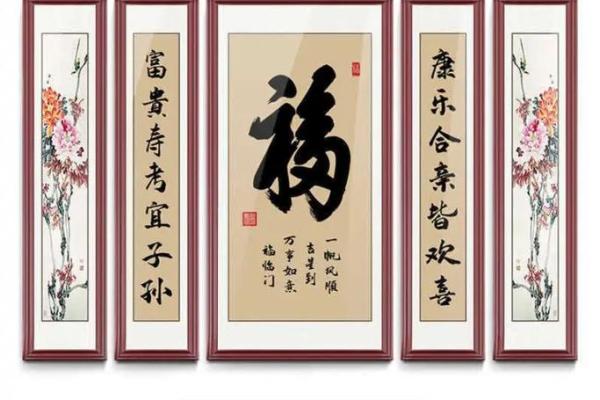 康乐合亲皆欢喜
福
一帆风順
吉星到
万事如意
福临门
富貴寿考宜子孙